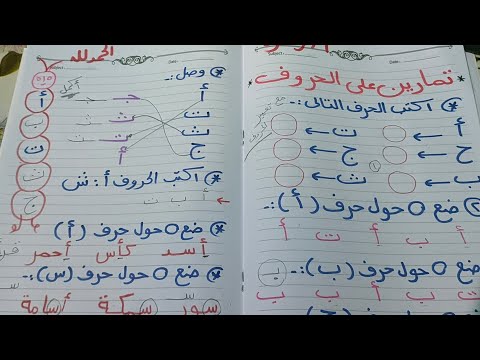 تمارين على الحروف
* اكتب الحرف التالى:-
أ ← ت ←
ح ← ج ←
ب ← ث ←
ضع O حول حرف (أ):-
أ ب أ ت أ
ضع O حول حرف (ب):-
ت ب أ ب ب
الحمد لله
* وصل:-
أ جـ
ت ث
ث ت
ج أ
* اكتب الحروف أ: ش
أ ب ت
* ضع O حول حرف (أ)
أسد كأس أحمر
* ضع O حول حرف (س):-
سور سمكة أسامة
أ
ب
ت
ث
ج